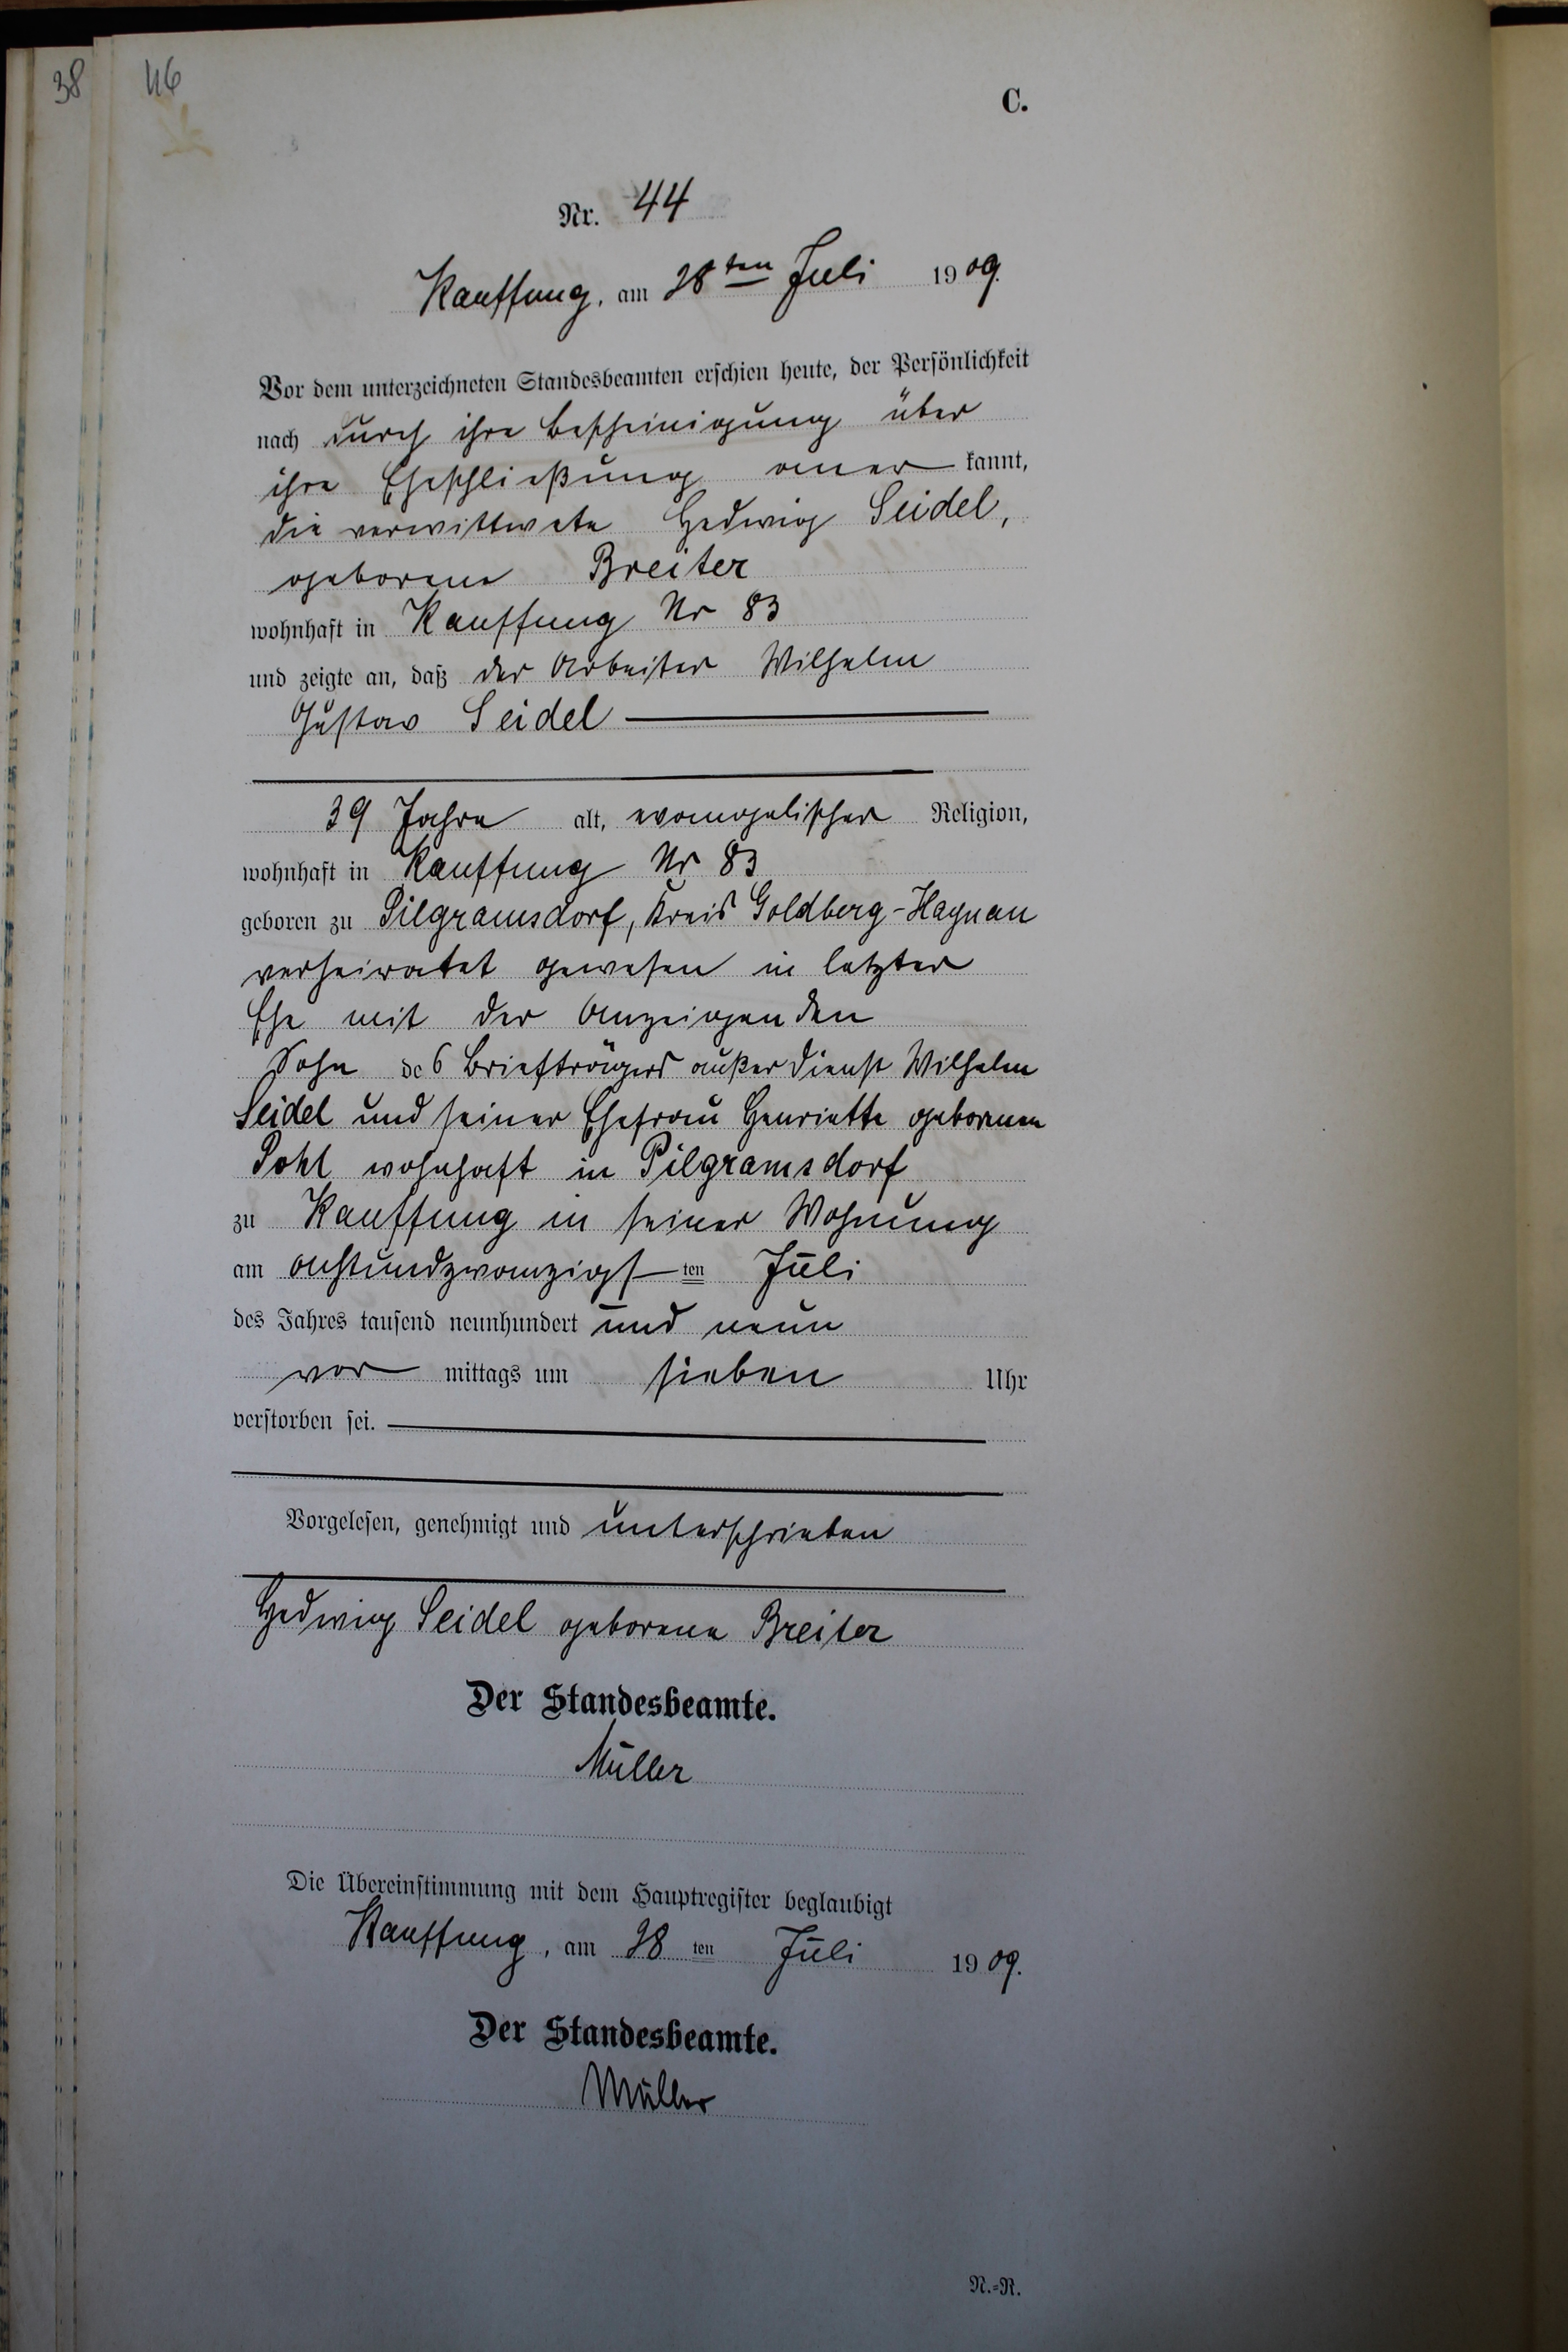 38
46
C.
Nr. 44
Kauffung, am 28ten Juli 1909.
Vor dem unterzeichneten Standesbeamten erschien heute, der Persönlichkeit
nach durch ihre Bescheinigung über
ihre Eheschließung aner kannt,
die verwittwete Hedwig Seidel,
geborene Breiter
wohnhaft in Kauffung Nr 83
und zeigte an, daß der Arbeiter Wilhelm
Gustav Seidel
39 Jahre alt, evangelischer Religion,
wohnhaft in Kauffung Nr 83
geboren zu Pilgramsdorf, Kreis Goldberg-Haynau
verheiratet gewesen in letzter
Ehe mit der Anzeigenden
Sohn des Briefträgers außer Dienst Wilhelm
Seidel und seiner Ehefrau Henriette geborenen
Pohl wohnhaft in Pilgramsdorf
zu Kauffung in seiner Wohnung
am achtundzwanzigsten Juli
des Jahres tausend neunhundert und neun
vor mittags um sieben Uhr
verstorben sei.
Vorgelesen, genehmigt und unterschrieben
Hedwig Seidel geborene Breiter
Der Standesbeamte.
Müller
Die Übereinstimmung mit dem Hauptregister beglaubigt
Kauffung, am 28 ten Juli 1909.
Der Standesbeamte.
Müller
N.=R.